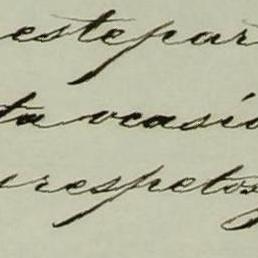 este par
ta ocasió
respetos